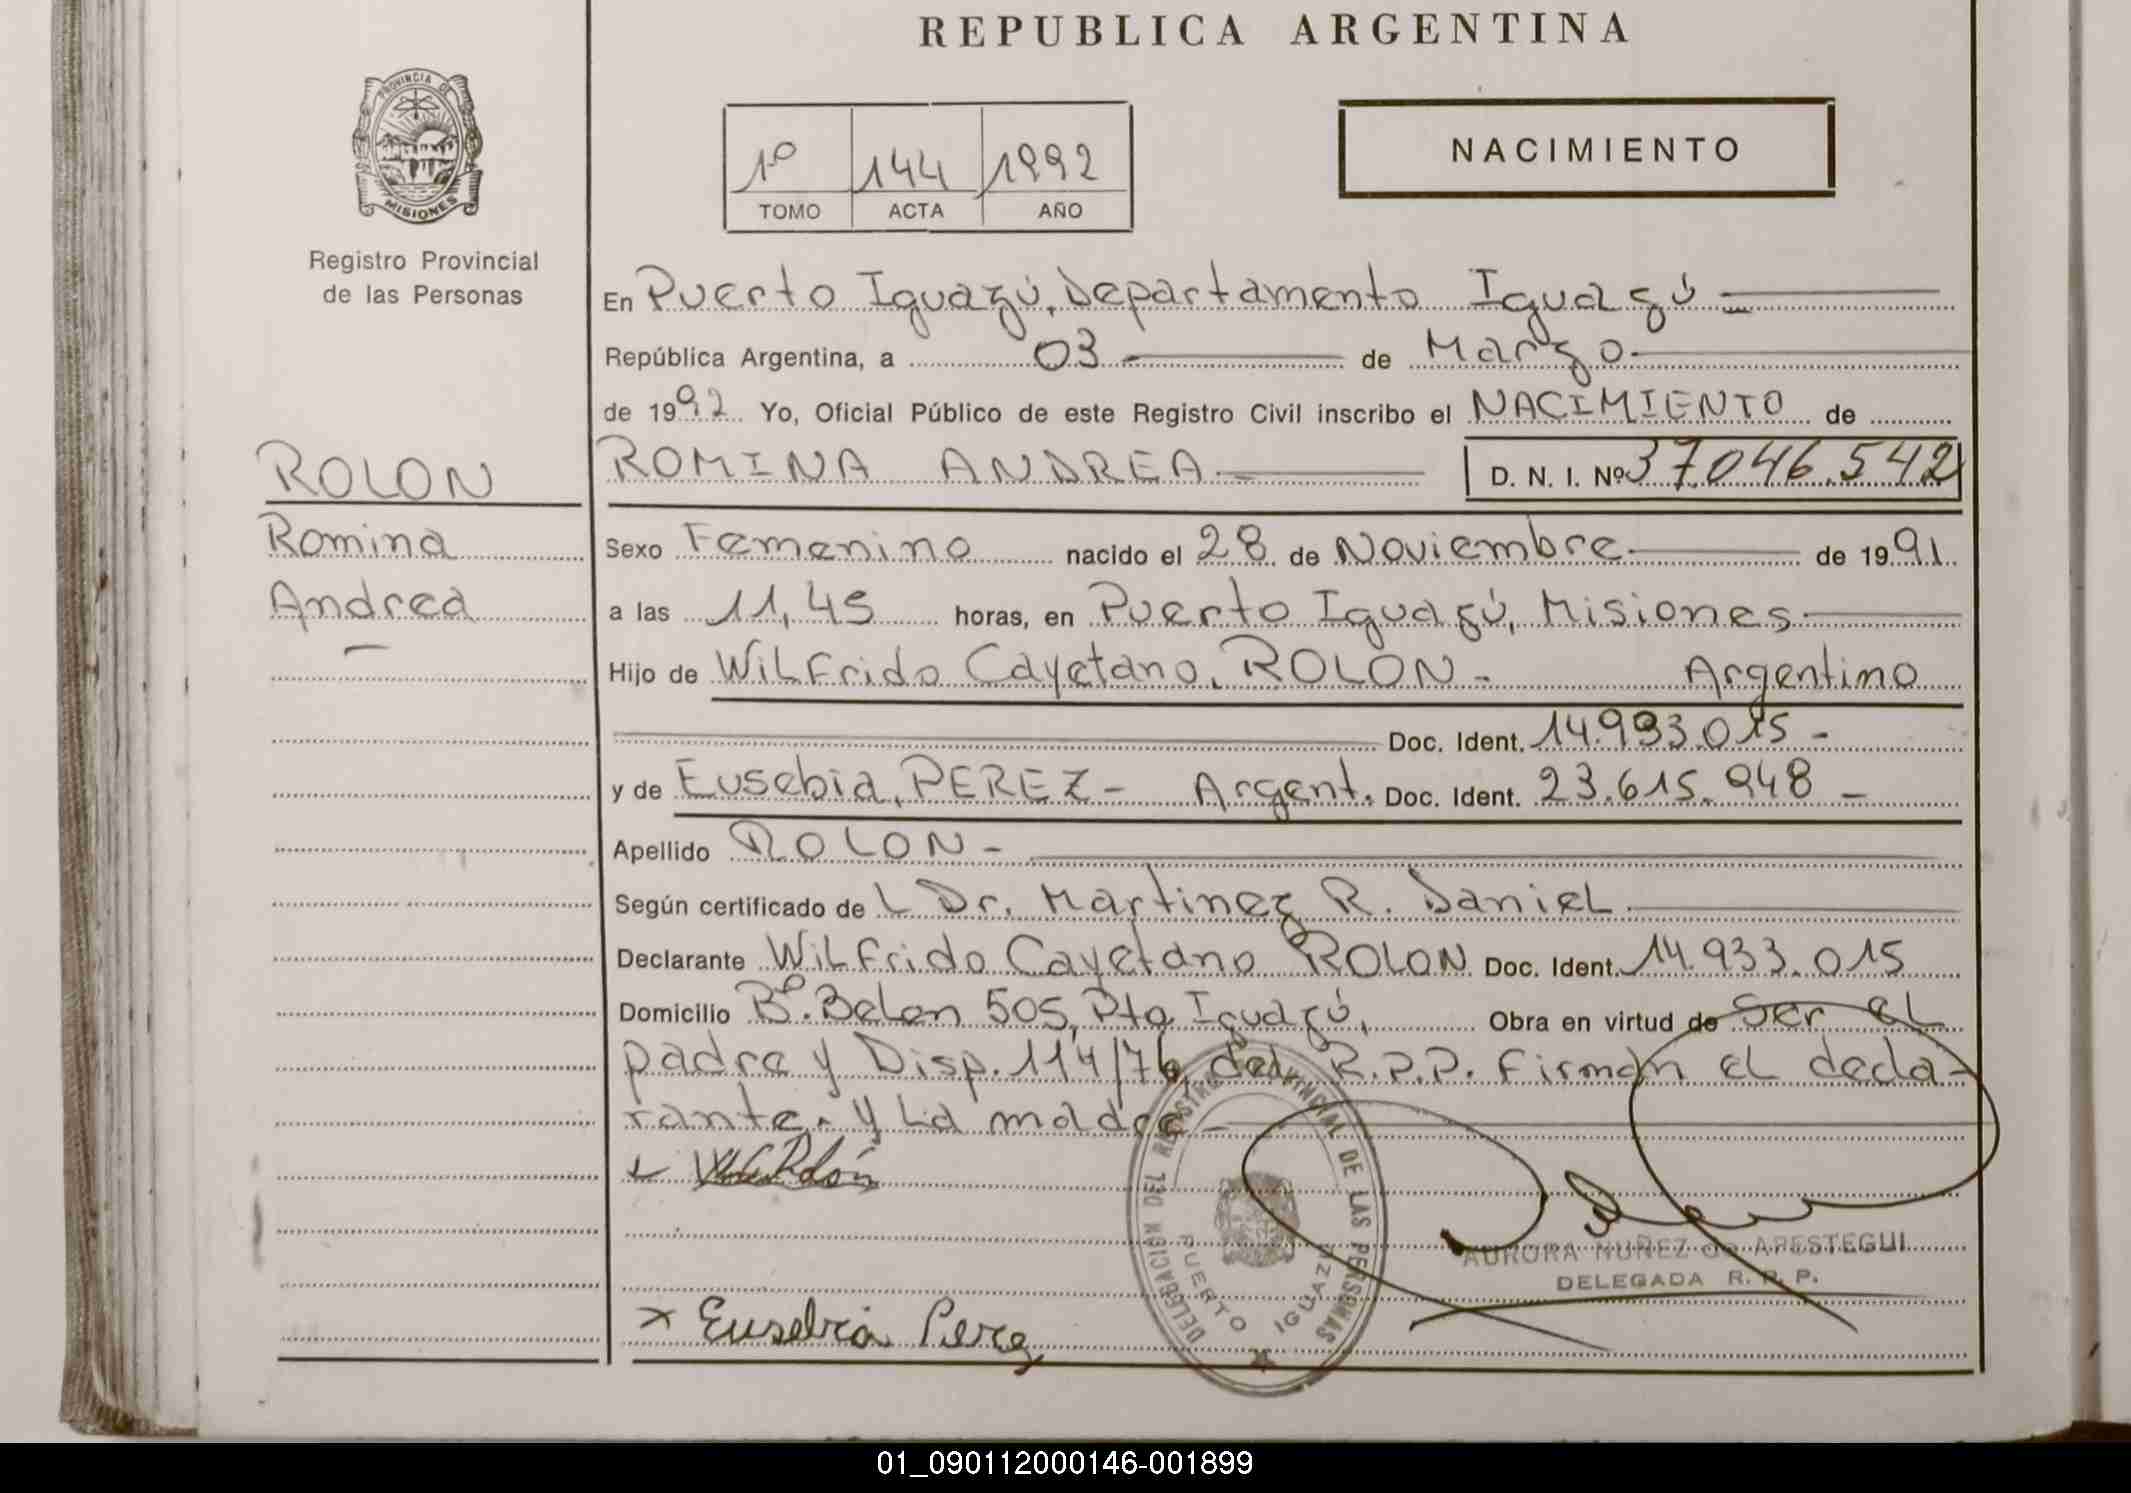 REPUBLICA ARGENTINA
NACIMIENTO
1º 144 1992
TOMO ACTA AÑO
PROVINCIA DE
MISIONES
Registro Provincial
de las Personas
En Puerto Iguazú, Departamento Iguazú
República Argentina, a 03 de Marzo
de 1992 Yo, Oficial Público de este Registro Civil inscribo el NACIMIENTO de
ROLON
Romina
Andrea
ROMINA ANDREA D. N. I. Nº 37.046.542
Sexo Femenino nacido el 28 de Noviembre de 1991.
a las 11,45 horas, en Puerto Iguazú, Misiones
Hijo de Wilfrido Cayetano, ROLON - Argentino
Doc. Ident. 14.933.015 -
y de Eusebia, PEREZ - Argent. Doc. Ident. 23.615.948 -
Apellido ROLON -
Según certificado de L Dr. Martinez R. Daniel
Declarante Wilfrido Cayetano ROLON Doc. Ident. 14.933.015
Domicilio Bº. Belen 505, Pto Iguazú, Obra en virtud de Ser el
padre y Disp. 114/76, del R.P.P. Firman el decla-
rante. y La madre -
Rolón
x Eusebia Perez
DELEGACION DEL REGISTRO PROVINCIAL DE LAS PERSONAS
PUERTO IGUAZU
AURORA NUÑEZ de APESTEGUI
DELEGADA R. P. P.
01_090112000146-001899